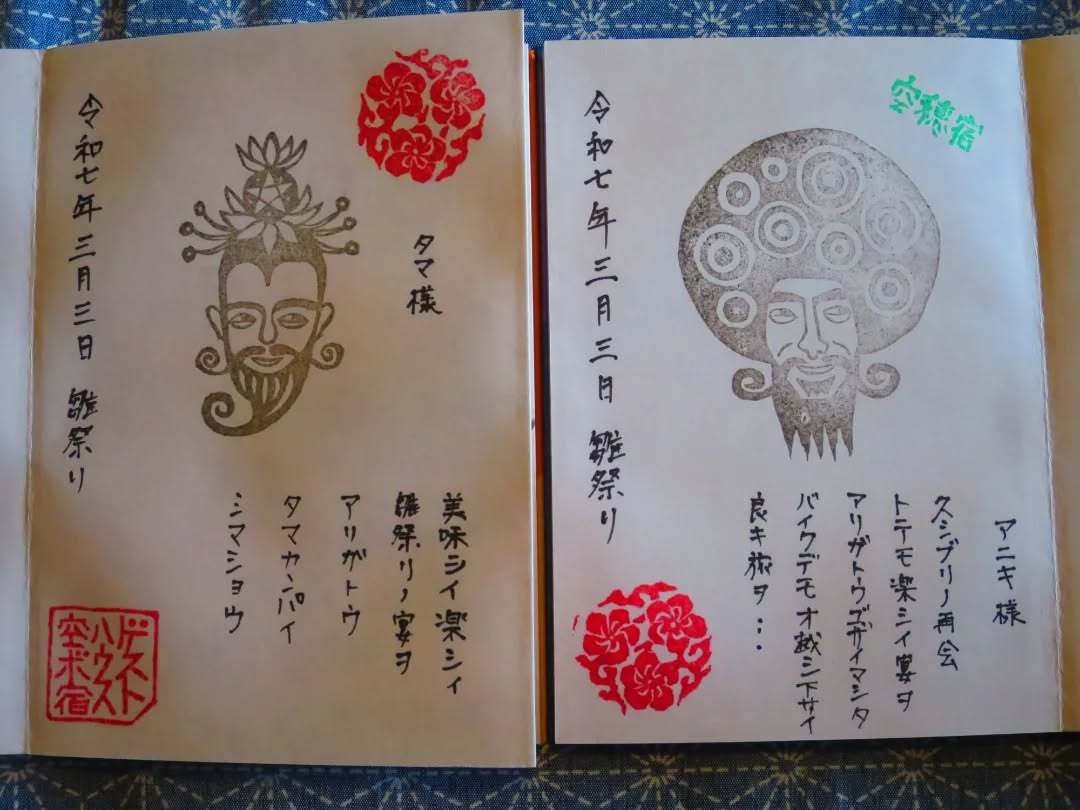 令和七年 三月三日 雛祭り
タマ様
美味シイ楽シイ
雛祭リノ宴ヲ
アリガトウ
タマカンパイ
シマショウ
ゲスト
ハウス
空ホ宿
空穂宿
令和七年 三月三日 雛祭り
アニキ様
久シブリノ再会
トテモ楽シイ宴ヲ
アリガトウゴザイマシタ
バイクデモオ越シ下サイ
良キ旅ヲ・・・